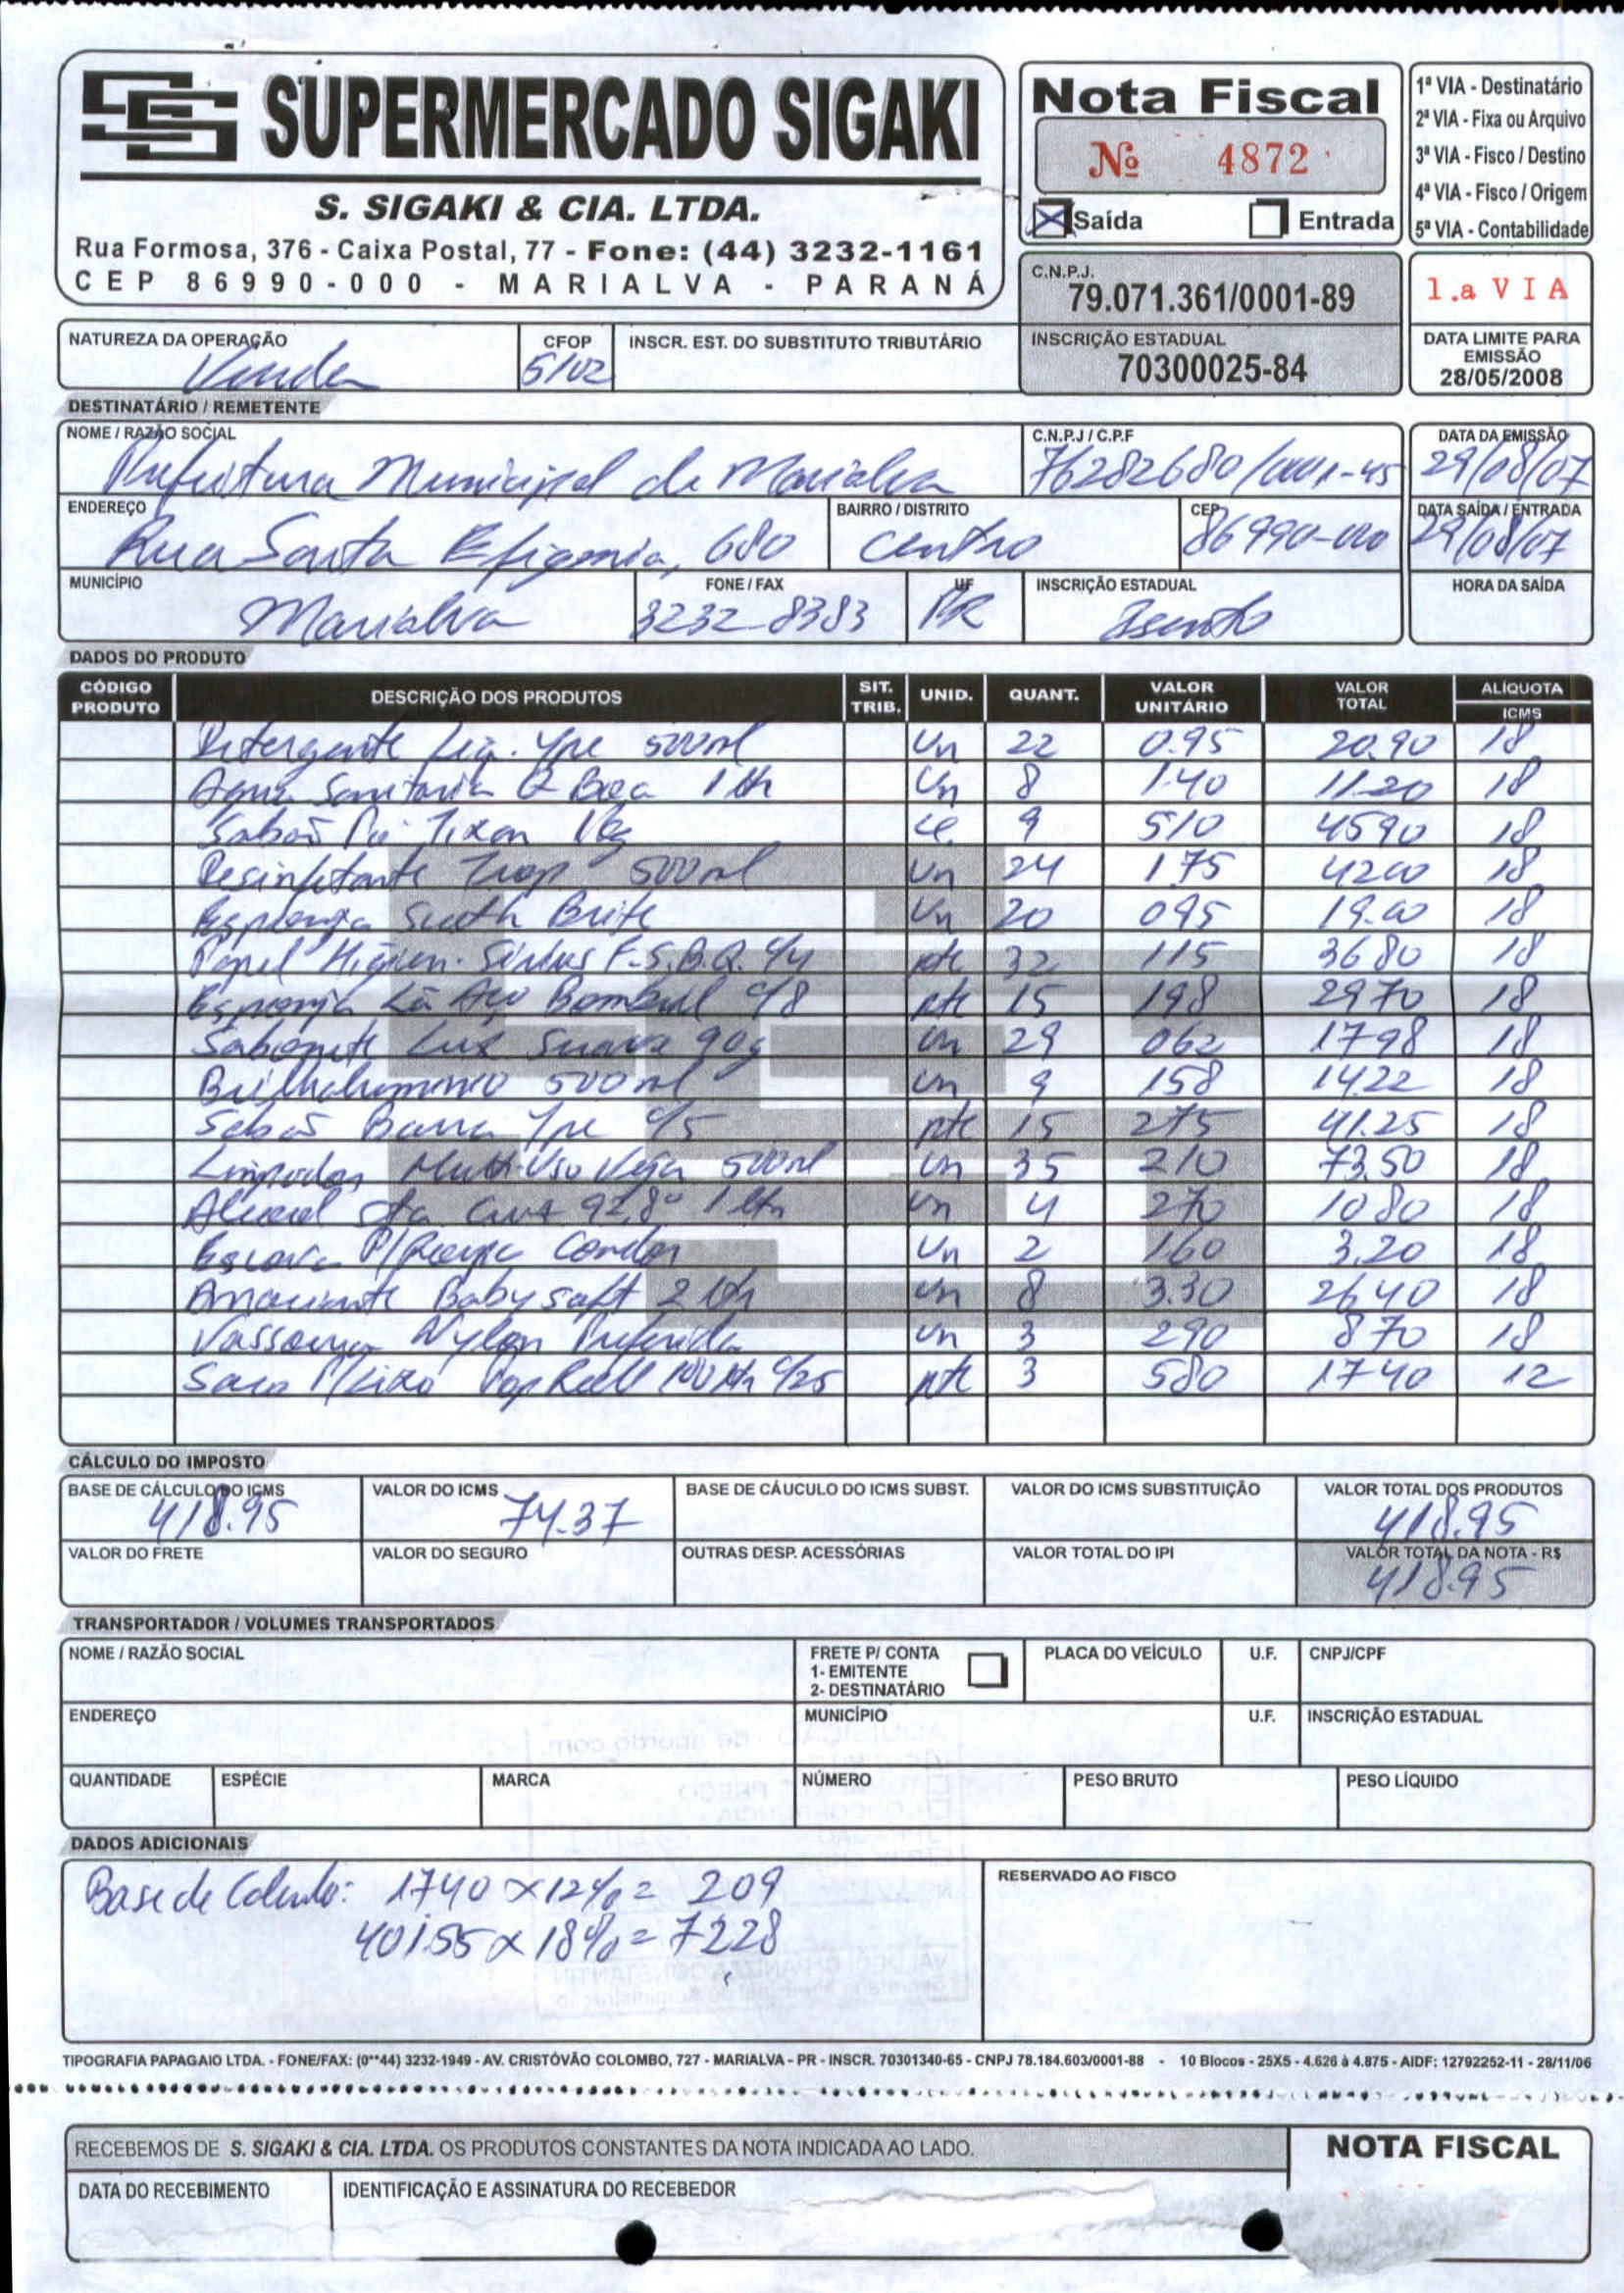 SS SUPERMERCADO SIGAKI
S. SIGAKI & CIA. LTDA.
Rua Formosa, 376 - Caixa Postal, 77 - Fone: (44) 3232-1161
CEP 86990-000 - MARIALVA - PARANÁ
Nota Fiscal
Nº 4872
X Saída Entrada
1ª VIA - Destinatário
2ª VIA - Fixa ou Arquivo
3ª VIA - Fisco / Destino
4ª VIA - Fisco / Origem
5ª VIA - Contabilidade
C.N.P.J.
79.071.361/0001-89
INSCRIÇÃO ESTADUAL
70300025-84
1.a VIA
DATA LIMITE PARA
EMISSÃO
28/05/2008
NATUREZA DA OPERAÇÃO CFOP INSCR. EST. DO SUBSTITUTO TRIBUTÁRIO
Venda 5102
DESTINATÁRIO / REMETENTE
NOME / RAZÃO SOCIAL C.N.P.J / C.P.F DATA DA EMISSÃO
Prefeitura Municipal de Marialva 76282680/0001-45 29/08/07
ENDEREÇO BAIRRO / DISTRITO CEP DATA SAÍDA / ENTRADA
Rua Santa Efigenia, 680 Centro 86990-000 29/08/07
MUNICÍPIO FONE / FAX UF INSCRIÇÃO ESTADUAL HORA DA SAÍDA
Marialva 3232-8383 PR Isento
DADOS DO PRODUTO
CÓDIGO PRODUTO DESCRIÇÃO DOS PRODUTOS SIT. TRIB. UNID. QUANT. VALOR UNITÁRIO VALOR TOTAL ALÍQUOTA ICMS
Detergente Liq. Ype 500ml Un 22 0.95 20.90 18
Agua Sanitaria Q Boa 1 ltr Un 8 1.40 11.20 18
Sabão Pó Tixan 1kg 9 510 4590 18
Desinfetante 500ml Un 24 175 4200 18
Esponja Scoth Brite Un 20 095 19.00 18
Papel Higien. Sirius F.S.B.Q. c/4 pte 32 115 3680 18
Esponja Lã Aço Bombril c/8 pte 15 198 2970 18
Sabonete Lux Suave 90g Un 29 062 1798 18
Brilhaluminio 500ml Un 9 158 1422 18
Sabão Barra Ype c/5 pte 15 275 41.25 18
Limpador Multi-Uso Veja 500ml Un 35 210 73.50 18
Alcool Sta Cruz 92,8º 1 ltr Un 4 270 1080 18
Escova P/Roupa Condor Un 2 1.60 3.20 18
Amaciante Baby soft 2 ltr Un 8 3.30 26.40 18
Vassoura Nylon Preferida Un 3 290 870 18
Saco P/Lixo 100 ltr c/25 pte 3 580 1740 12
CÁLCULO DO IMPOSTO
BASE DE CÁLCULO DO ICMS VALOR DO ICMS BASE DE CÁUCULO DO ICMS SUBST. VALOR DO ICMS SUBSTITUIÇÃO VALOR TOTAL DOS PRODUTOS
418.95 74.37 418.95
VALOR DO FRETE VALOR DO SEGURO OUTRAS DESP. ACESSÓRIAS VALOR TOTAL DO IPI VALOR TOTAL DA NOTA - R$
418.95
TRANSPORTADOR / VOLUMES TRANSPORTADOS
NOME / RAZÃO SOCIAL FRETE P/ CONTA PLACA DO VEÍCULO U.F. CNPJ/CPF
1- EMITENTE
2- DESTINATÁRIO
ENDEREÇO MUNICÍPIO U.F. INSCRIÇÃO ESTADUAL
QUANTIDADE ESPÉCIE MARCA NÚMERO PESO BRUTO PESO LÍQUIDO
DADOS ADICIONAIS
RESERVADO AO FISCO
Base de Calculo: 1740 x 12% = 209
401.55 x 18% = 7228
TIPOGRAFIA PAPAGAIO LTDA. - FONE/FAX: (0**44) 3232-1949 - AV. CRISTÓVÃO COLOMBO, 727 - MARIALVA - PR - INSCR. 70301340-65 - CNPJ 78.184.603/0001-88 - 10 Blocos - 25X5 - 4.626 à 4.875 - AIDF: 12792252-11 - 28/11/06
RECEBEMOS DE S. SIGAKI & CIA. LTDA. OS PRODUTOS CONSTANTES DA NOTA INDICADA AO LADO.
NOTA FISCAL
DATA DO RECEBIMENTO IDENTIFICAÇÃO E ASSINATURA DO RECEBEDOR